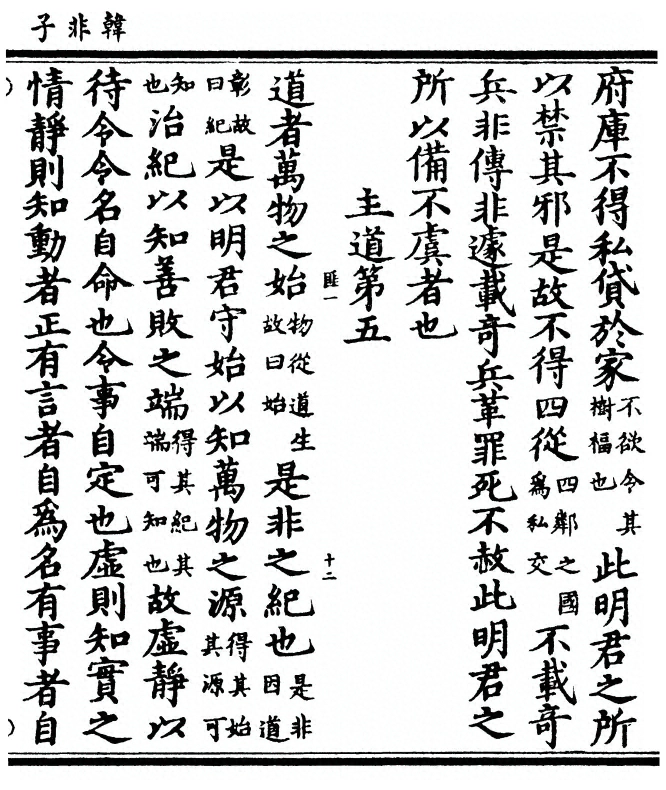 韓非子
府庫不得私貸於家不欲令其樹福也此明君之所
以禁其邪是故不得四從四鄰之國爲私交不載奇
兵非傳非遽載奇兵革罪死不赦此明君之
所以備不虞者也
主道第五
匯一
十二
道者萬物之始物從道生故曰始是非之紀也是非因道
彰故曰紀是以明君守始以知萬物之源得其始其源可
知也治紀以知善敗之端得其紀其端可知也故虛靜以
待令令名自命也令事自定也虛則知實之
情靜則知動者正有言者自爲名有事者自